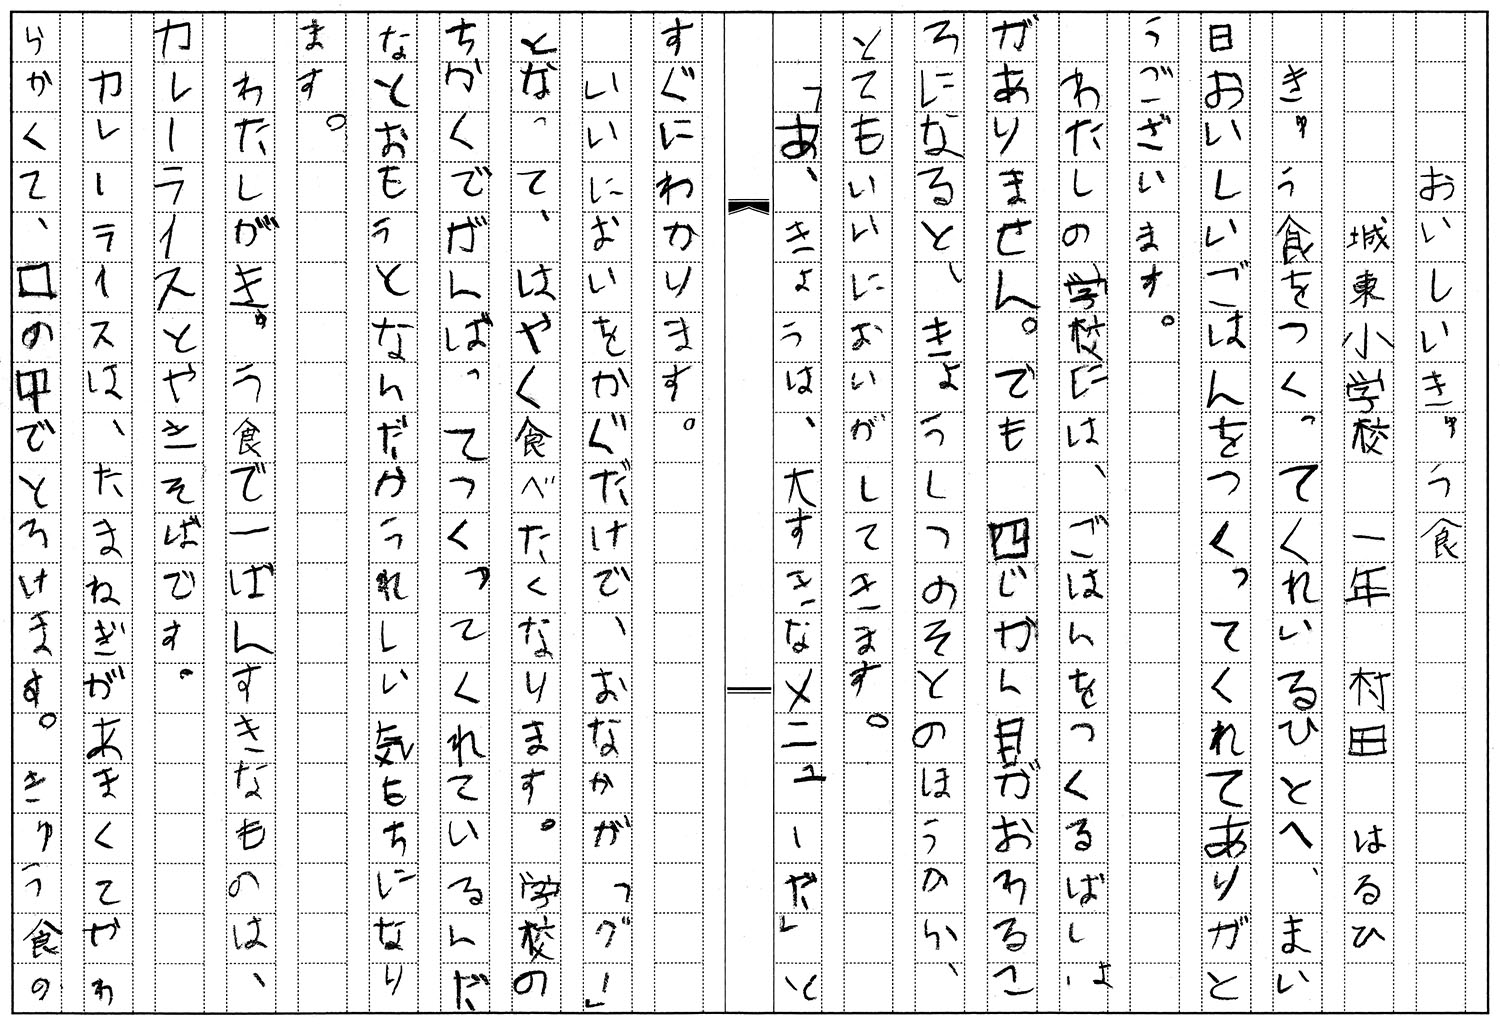 おいしいきゅう食
城東小学校 一年 村田 はるひ
きゅう食をつくってくれいるひとへ、まい
日おいしいごはんをつくってくれてありがと
うございます。
わたしの学校には、ごはんをつくるばしょ
がありません。でも 四じかん目がおわるこ
ろになると、きょうしつのそとのほうから、
とてもいいにおいがしてきます。
「あ、きょうは、大すきなメニューだ」と
すぐにわかります。
いいにおいをかぐだけで、おなかが「グー」
となって、はやく食べたくなります。学校の
ちかくでがんばってつくってくれているんだ
なとおもうとなんだかうれしい気もちになり
ます。
わたしがきゅう食で一ばんすきなものは、
カレーライスとやきそばです。
カレーライスは、たまねぎがあまくてやわ
らかくて、口の中でとろけます。きゅう食の